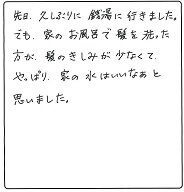 先日、久しぶりに銭湯に行きました。
でも、家のお風呂で髪を洗った
方が、髪のきしみが少なくて、
やっぱり、家の水はいいなぁと
思いました。